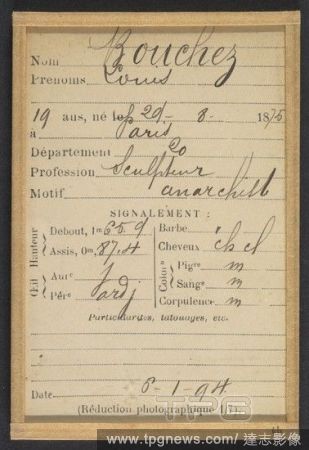 Nom Bouchez
Prénoms Louis
19 ans, né le 29 - 8 - 1875
à Paris
Département 20
Profession Sculpteur
Motif anarchiste
SIGNALEMENT :
Hauteur
Debout, 1m 65.9
Assis, 0m, 87.4
Œil
Auré j
Péré ardj
Barbe
Cheveux ch cl
Color.on
Pigre m
Sang. m
Corpulence m
Particularités, tatouages, etc.
Date 6-1-94
(Réduction photographique 1/7).
TPG
www.tpgnews.com/ 達志影像